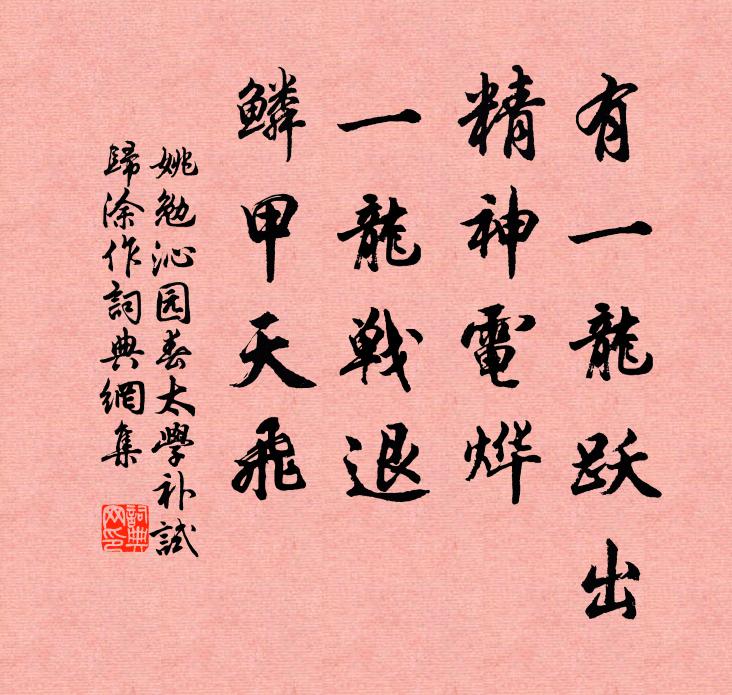 有一龍跃出
精神電烨
一龍戰退
鱗甲天飛
姚勉沁园春太學补試
歸涂作詞典網集
詞典网印